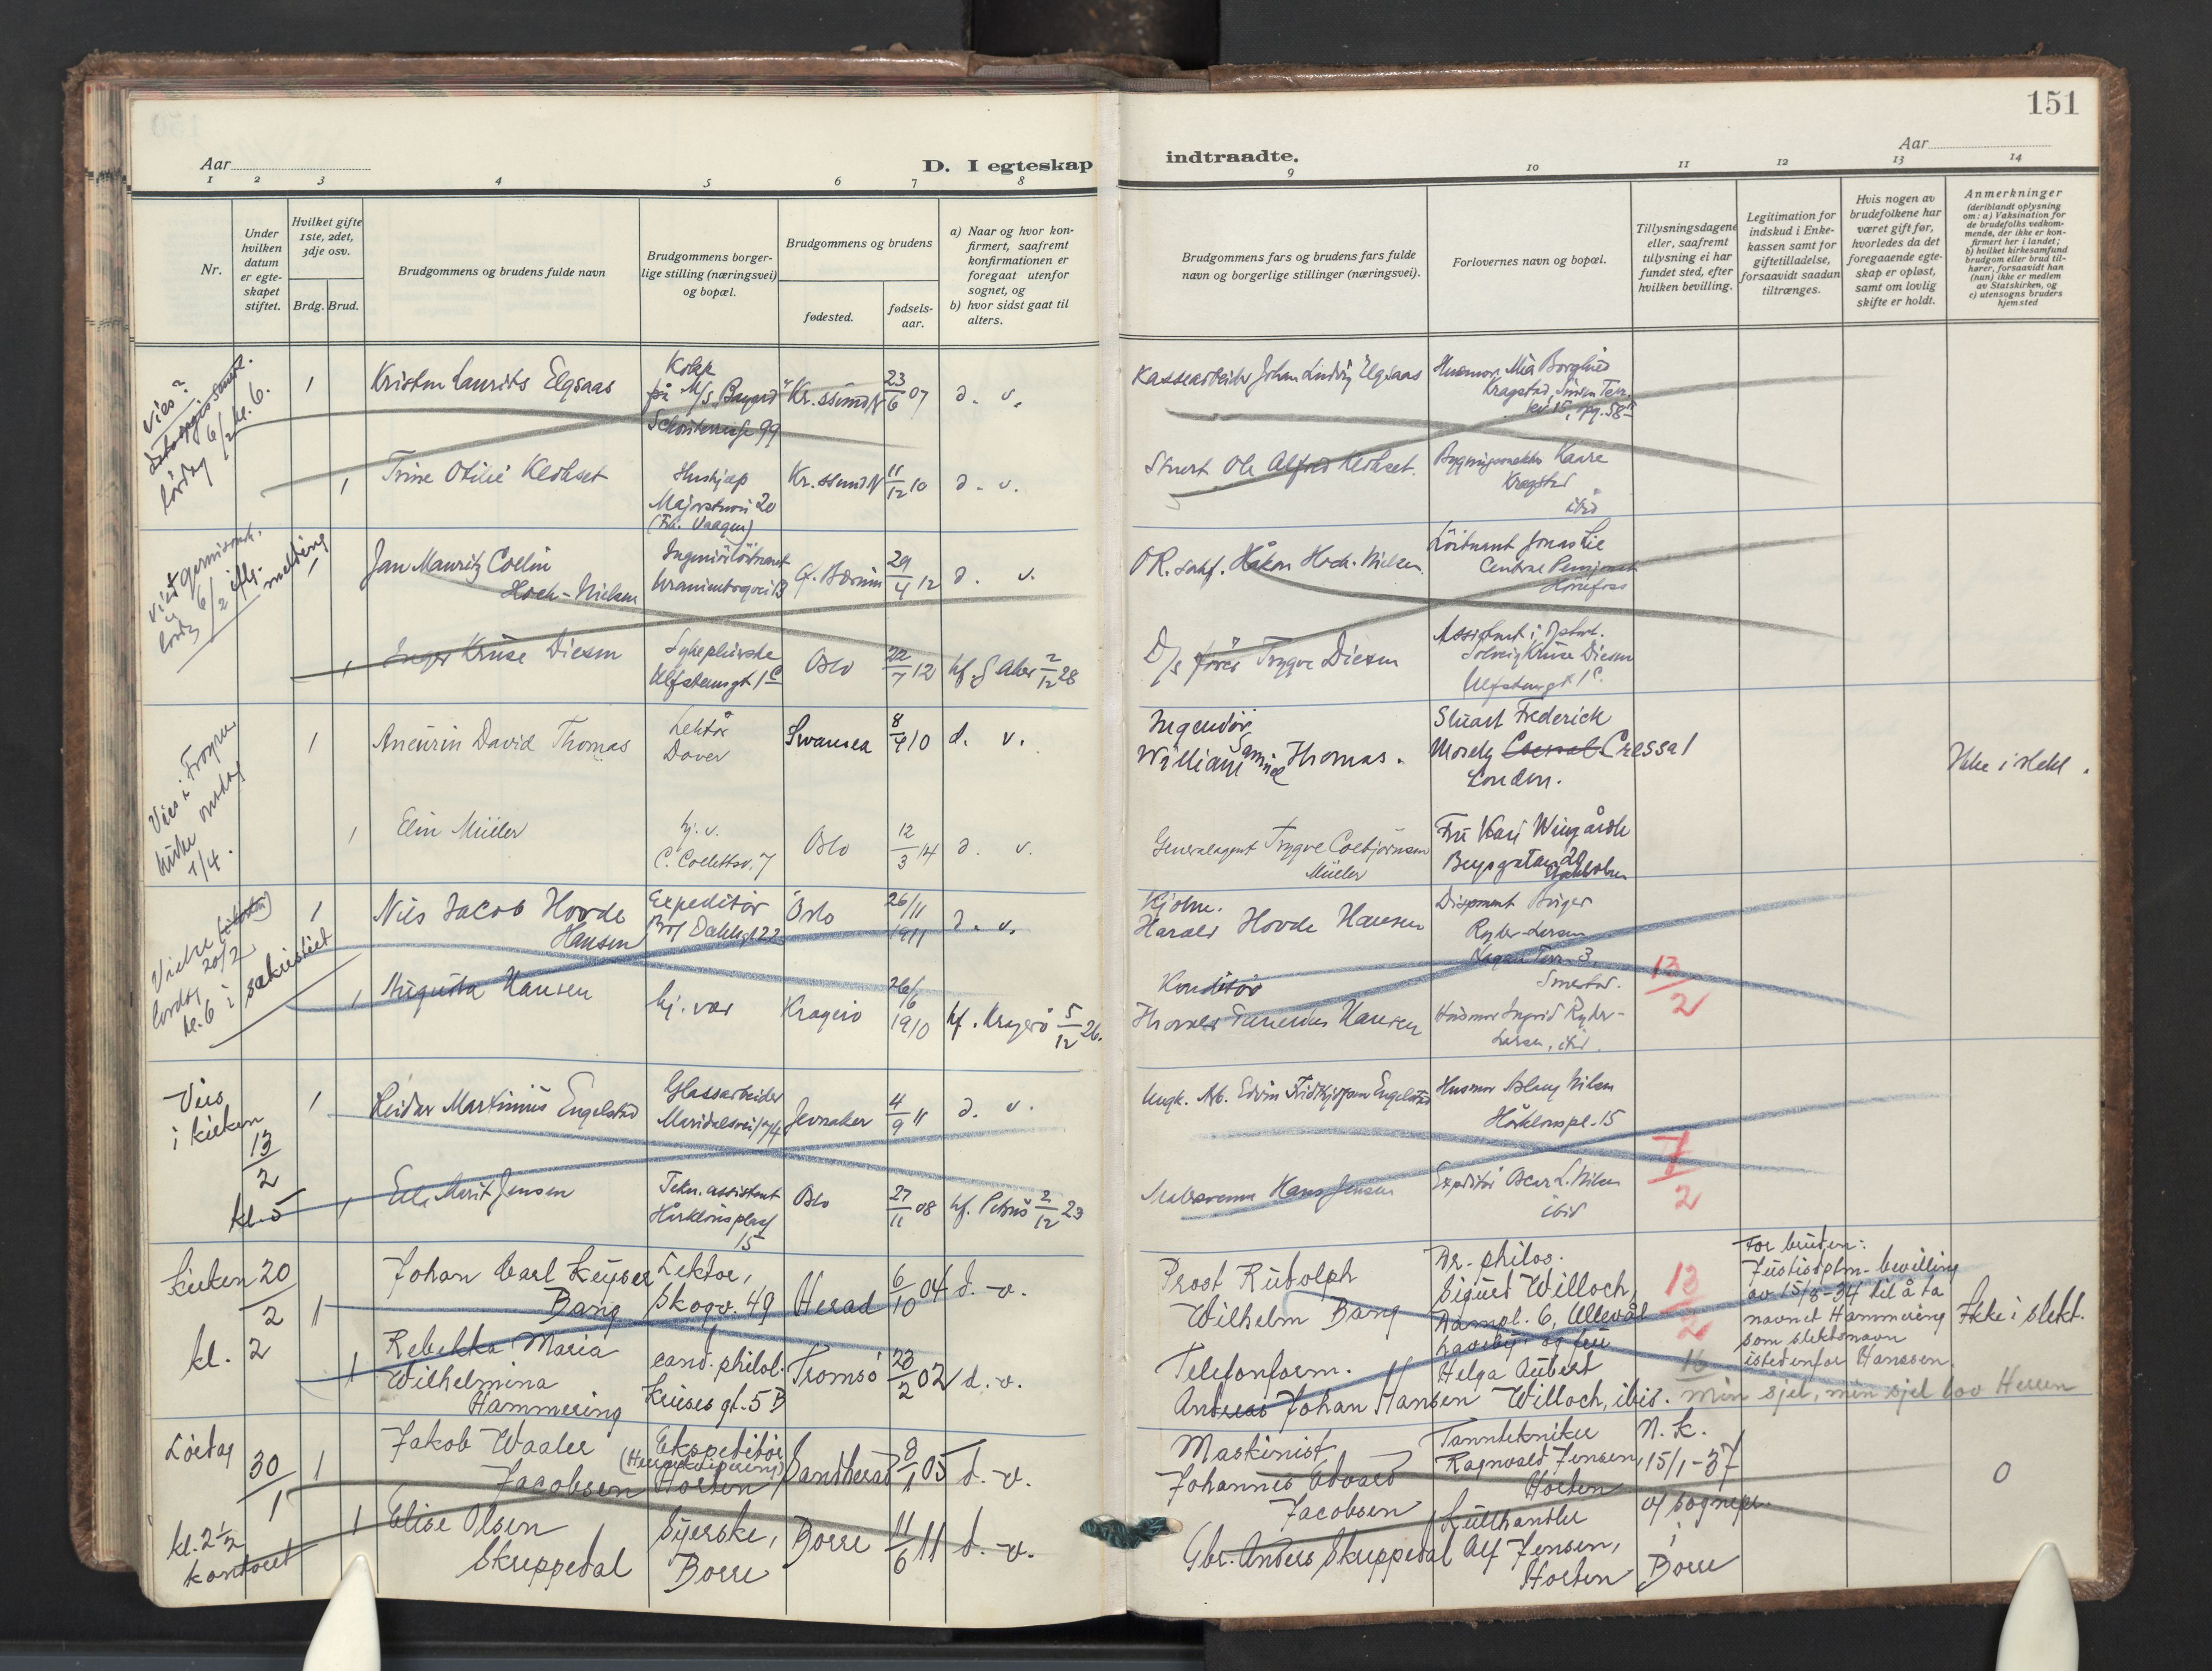 151
Aar
D. I egteskap
indtraadte.
Aar
1 2 3 4 5 6 7 8
9 10 11 12 13 14
Nr.
Under hvilken datum er egteskapet stiftet.
Hvilket gifte 1ste, 2det, 3dje osv.
Brdg. Brud.
Brudgommens og brudens fulde navn
Brudgommens borgerlige stilling (næringsvei) og bopæl.
Brudgommens og brudens
fødested.
fødsels-aar.
a) Naar og hvor konfirmert, saafremt konfirmationen er foregaat utenfor sognet, og
b) hvor sidst gaat til alters.
Brudgommens fars og brudens fars fulde navn og borgerlige stillinger (næringsvei).
Forlovernes navn og bopæl.
Tillysningsdagene eller, saafremt tillysning ei har fundet sted, efter hvilken bevilling.
Legitimation for indskud i Enkekassen samt for giftetilladelse, forsaavidt saadan tiltrænges.
Hvis nogen av brudefolkene har været gift før, hvorledes da det foregaaende egteskap er opløst, samt om lovlig skifte er holdt.
Anmerkninger
(deriblandt oplysning om: a) Vaksination for de brudefolks vedkommende, der ikke er konfirmert her i landet; b) hvilket kirkesamfund brudgom eller brud tilhører, forsaavidt han (hun) ikke er medlem av Statskirken, og c) utensogns bruders hjemsted
Vies?
lørdag 6/2 kl. 6.
1
Kristen Laurits Elgsaas
Kokk
på M/s
99
Kr.sund N
23/6 07
d. v.
Johan Ludvig Elgsaas
Husmor Mia Borghild
Kragstad, Sinsen Terr.
1
Trine Otilie Klethset
Hushjelp
Majorstuvei 20
(Fr. Vaagen)
Kr.sund N
11/12 10
d. v.
Stuert Ole Alfred Klethset.
Kaare
Kragstad
ibid
Viet
6/2 iflg. melding
1
Jan Mauritz Coelin
Hoch-Nielsen
Ingeniørløitnant
Uranienborgvei 13
V. Bærum
29/4 12
d. v.
O.R. sakf. Håkon Hoch-Nielsen.
Løitnant Jonas Lie
Central Pensjonat
Hønefoss
1
Inger Kruse Diesen
Sykepleierske
Ulfstensgt 1 C
Oslo
22/7 12
kf. 2/12 28
D/s fører Trygve Diesen
Assistent i
Solveig Kruse Diesen
Ulfstensgt 1 C.
Vies i Frogner
kirke onsdag
7/4.
1
Aneurin David Thomas
Lektor
Dover
Swansea
8/4 10
d. v.
Ingeniør
William Samuel Thomas.
Stuart Frederick
Mosely Cressal
London.
Ikke i slekt.
1
Elin Müller
hj. v.
C. Collettsv. 7
Oslo
12/3 14
d. v.
Generalagent Trygve Colbjørnsen
Müller
Fru Kari Wingårdh
Bergsgatan 29
Stockholm
lørdag 20/2
kl. 6 i sakristiet
1
Nils Jacob Hovde
Hansen
Expeditør
Prof. Dahlsgt 22
Oslo
26/11 1911
d. v.
Kjøbm.
Harald Hovde Hansen
Disponent Birger
Ryder-Larsen
3.
Smestad.
13/2
1
Augusta Hansen
hj. vær
Kragerø
26/6 1910
kf. Kragerø 5/12 26.
Konditor
Hansen
Husmor Ingrid Ryder-
Larsen, ibid.
Vies
i kirken
13/2
kl. 5
1
Reidar Martinius Engelstad
Glassarbeider
Maridalsvei 174
Jevnaker
4/9 11
d. v.
Ungk. Arb. Edvin Fridtjof Engelstad
Husmor Aslaug Nilsen
Håklonspl. 15
7/2
1
Merit Jensen
Tekn. assistent
Håklonsplass
15
Oslo
27/11 08
kf. Petrus 2/12 23
Hans Jensen
Expeditør Oscar L. Nilsen
ibid
Kirken 20/2
kl. 2
1
Johan Carl Keyser
Bang
Lektor,
Skogv. 49
Herad
6/10 04
d. v.
Prost Rudolph
Wilhelm Bang
Dr. philos.
Sigurd Willoch,
Dampl. 6, Ullevål
haveby og fru
Helga Aubert
Willoch, ibid.
13/2
For bruden:
Justisdptm. bevilling
av 15/8-34 til å ta
navnet Hammering
som slektsnavn
istedenfor Hanssen.
Ikke i slekt.
1
Rebekka Maria
Wilhelmina
Hammering
cand. philol.
Kruses gt. 5 B
Tromsø
23/2 02
d. v.
Telefonform.
Andreas Johan Hansen
min sjel, min sjel lov Herren
Lørdag
30/1
kl. 2 1/2
kontoret
1
Jakob Waaler
Jacobsen
Ekspeditør
(Herreekvipering)
Horten
Sandherad
8/1 05
d. v.
Maskinist
Johannes Edvard
Jacobsen
Tanntekniker
Ragnvald Jensen,
Horten
N. K.
15/1-37
v/ sognepr.
i
Borre
0
1
Elise Olsen
Skreppedal
Syerske,
Borre
Borre
11/6 11
d. v.
Gbr. Anders Skreppedal
Kullhandler
Alf Jensen,
Horten